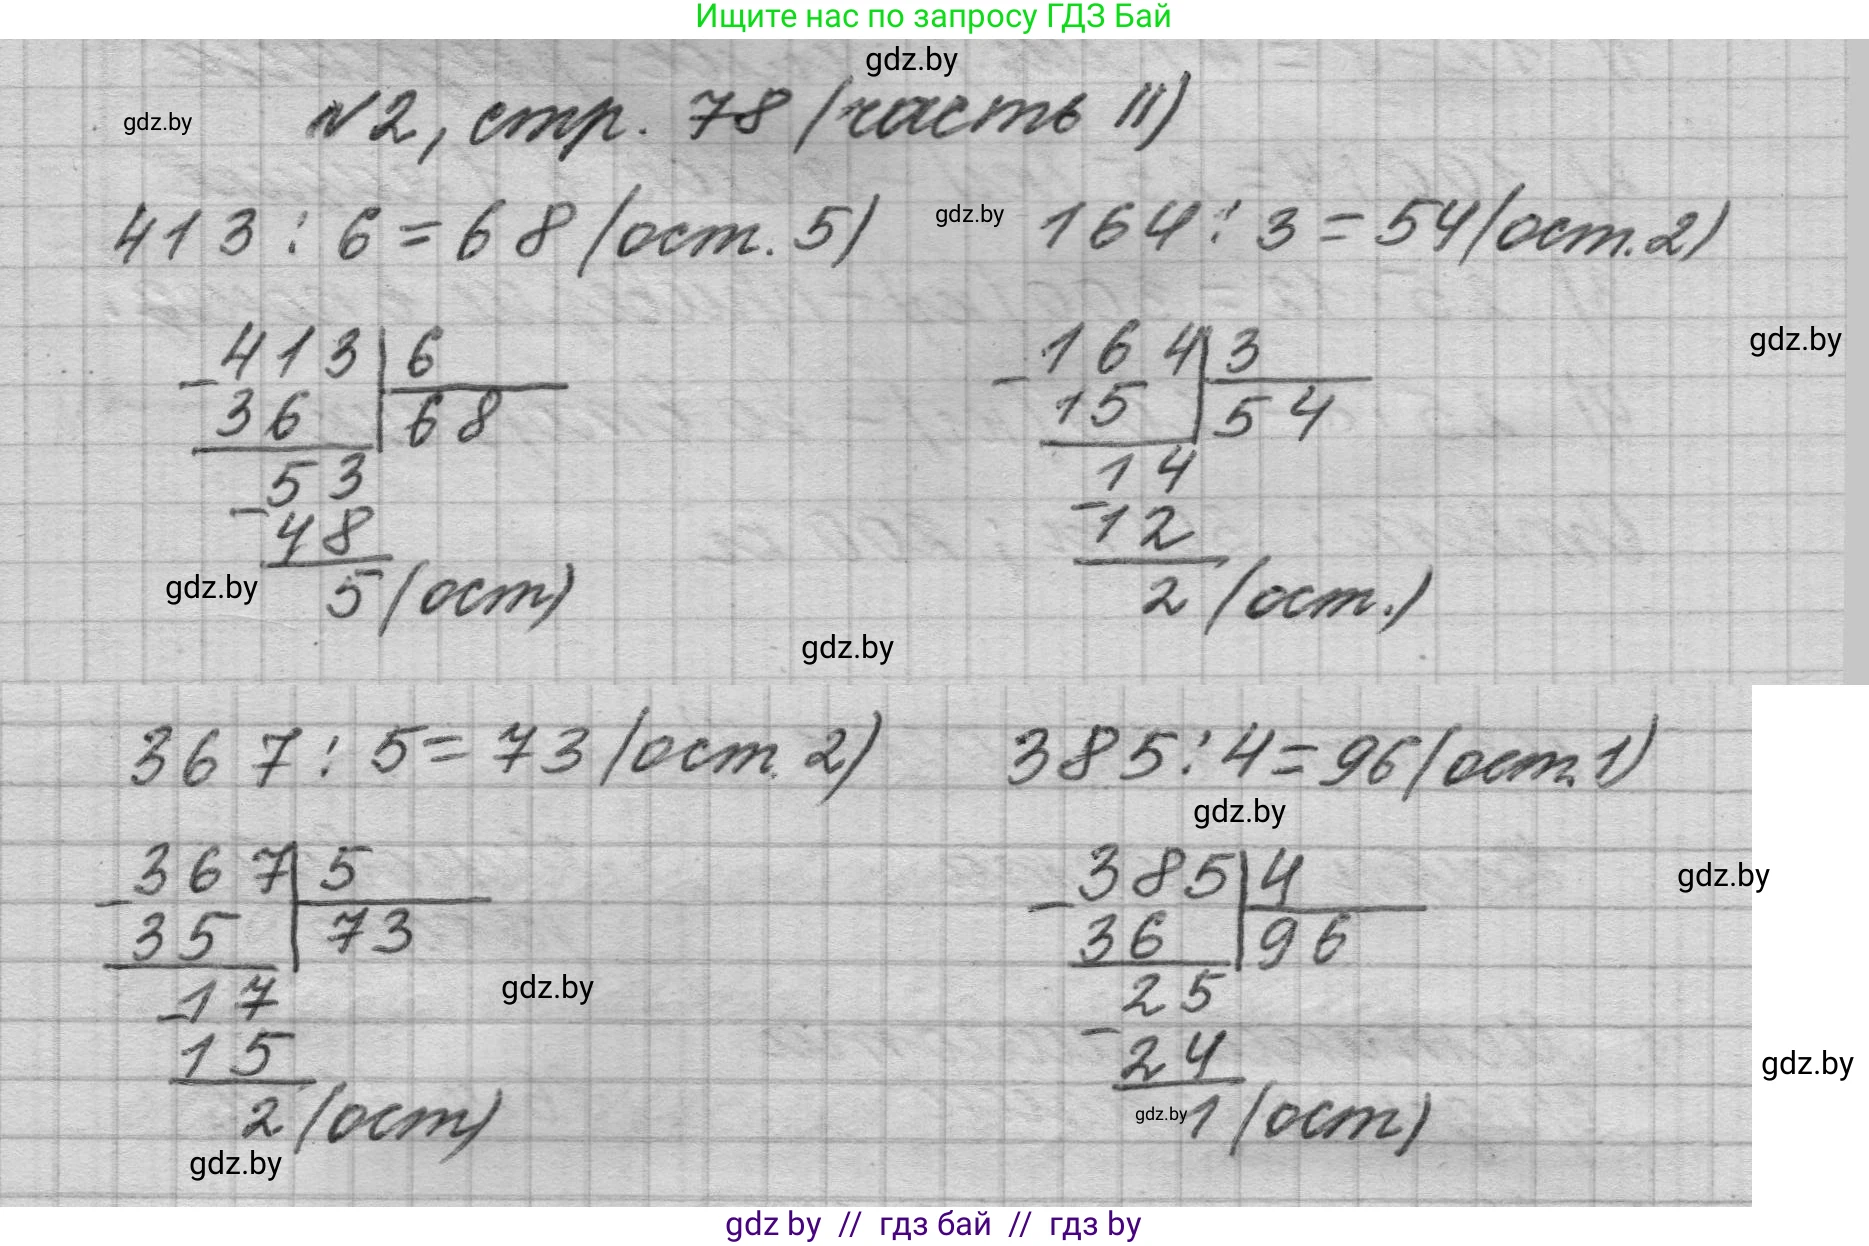 Ищите нас по запросу ГДЗ Бай
gdz.by
gdz.by
№2, стр. 78 (часть II)
413 : 6 = 68 (ост. 5)
gdz.by
164 : 3 = 54 (ост. 2)
413 6
36 68
53
48
5 (ост)
164 3
15 54
14
12
2 (ост.)
gdz.by
gdz.by
gdz.by
367 : 5 = 73 (ост. 2)
385 : 4 = 96 (ост. 1)
gdz.by
367 5
35 73
17
15
2 (ост)
385 4
36 96
25
24
1 (ост)
gdz.by
gdz.by
gdz.by
gdz.by
gdz.by
gdz by // гдз бай // гдз by